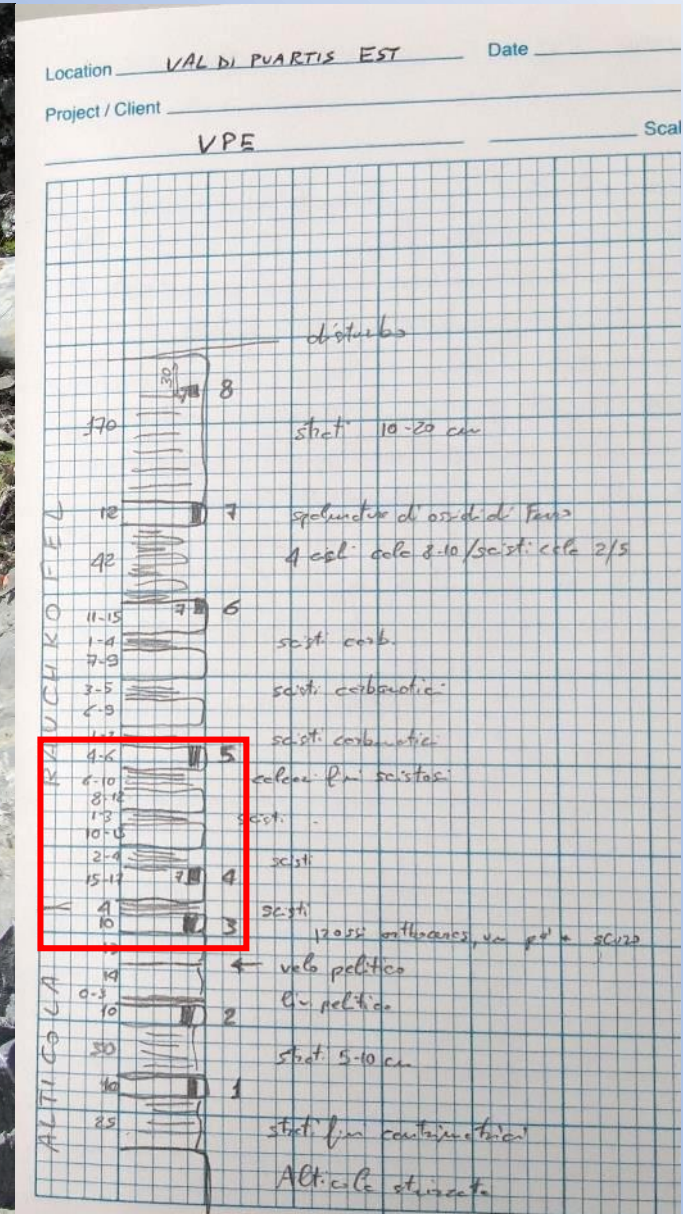 Location VAL DI PUARTIS EST Date
Project / Client
VPE Scal
disturbo
30
8
170 strati 10-20 cm
12 7 spalmature d'ossidi di Ferro
42 4 calc 8-10/scisti calc 2/5
11-15 7 6
1-4 scisti carb.
7-9
3-5 scisti carbonatici
6-9
scisti carbonatici
4-6 5
6-10 calcari fini scistosi
8-12
1-3 scisti
10-15
2-4 scisti
15-17 7 4
4 scisti
10 3 grossi orthoceras, un po' + scuro
velo pelitico
14
0-3 liv pelitico
10 2
50 strati 5-10 cm
10 1
25 strati fini centimetrici
Alticola
RAUCHKOFEL
ALTICOLA